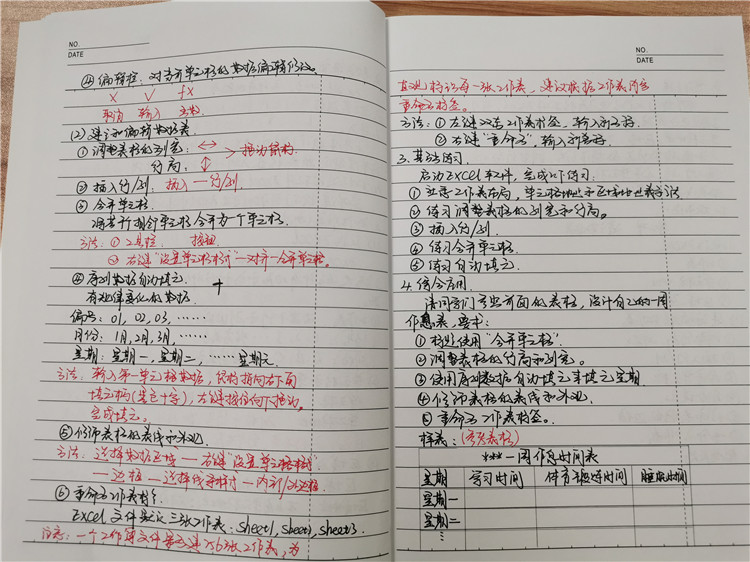 NO.
DATE
④ 编辑栏:对当前单元格的数据编辑修改。
× √ fx
取消 输入 函数
(2) 建立和编辑数据表
① 调整表格的列宽: ↔
行高: ↕ > 拖动鼠标
② 插入行/列: 插入一行/列
③ 合并单元格
将若干相邻单元格合并为一个单元格.
方法: ① 工具栏 按钮
② 右键“设置单元格格式”—对齐—合并单元格.
④ 序列数据自动填充.
有规律变化的数据. +
编号: 01, 02, 03, ……
月份: 1月, 2月, 3月, ……
星期: 星期一, 星期二, …… 星期天
方法: 输入第一单元格数据, 鼠标指向右下角
填充柄(黑色十字), 左键按住向下拖动,
完成填充。
⑤ 修饰表格的表线和外观.
方法: 选择数据区域—右键“设置单元格格式”
—边框—选择线条样式—内部/外边框.
⑥ 重命名工作表标签
Excel文件默认三张工作表: sheet1, sheet2, sheet3.
注意: 一个工作簿文件最多建256张工作表, 为
NO.
DATE
每一张工作表, 建议根据工作表内容
重命名标签。
方法: ① 左键双击工作表标签, 输入新名称.
② 右键“重命名”, 输入新名称.
3. 基础练习.
启动Excel软件, 完成以下练习:
① 工作表布局, 单元格地址和区域地址表示方法
② 练习调整表格的列宽和行高。
③ 插入行/列.
④ 练习合并单元格
⑤ 练习自动填充.
4. 综合应用.
请同学们参照前面的表格, 设计自己的一周
作息表, 要求:
① 标题使用“合并单元格”.
② 调整表格的行高和列宽。
③ 使用序列数据自动填充来填充星期
④ 修饰表格的表线和外观.
⑤ 重命名工作表标签。
样表: (参考表格)
***一周作息时间表
星期 学习时间 体育锻炼时间 睡眠时间
星期一
星期二
⋮